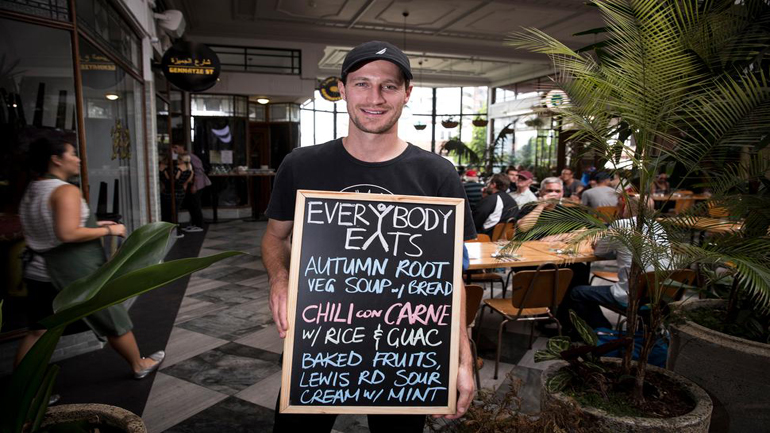 شارع الجميزة
GEMMAYZE ST
EVERYBODY
EATS
AUTUMN ROOT
VEG SOUP~, BREAD
CHILI con CARNE
W/ RICE & GUAC
BAKED FRUITS,
LEWIS RD SOUR
CREAM W/ MINT